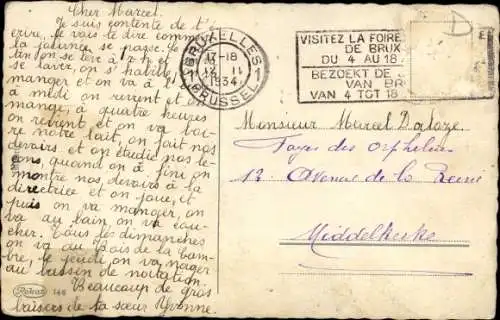 Cher Marcel.
Je suis contente de t'é-
crire, je vais te dire comme
la journée se passe. Le
tin on se lève à 7 h et
se lave, on s'habille
manger et on va à
à midi on revient et on
mange, à quatre heures
on revient et on va boi-
re notre lait, on fait nos
devoirs et on étudie nos le-
çons, quand on a fini on
montre nos devoirs à la
directrice et on joue, et
puis on va manger, on
va au bain on va cou-
cher. Tous les dimanches
on va au Bois de la Cam-
bre, le jeudi on va nager
au bassin de natation.
Beaucoup de gros
baisers de ta sœur Yvonne.
BRUXELLES 1
17-18
II
1934
1 BRUSSEL 1
VISITEZ LA FOIRE
DE BRUX
DU 4 AU 18
BEZOEKT DE
VAN BR
VAN 4 TOT 18
D
Monsieur Marcel
des Orphelins
Avenue de la Reine
Middelkerke
146